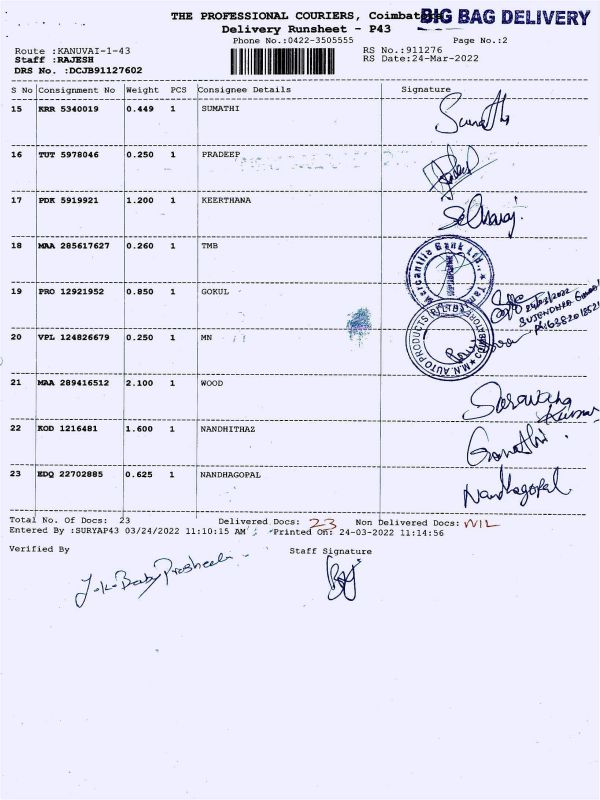 THE PROFESSIONAL COURIERS, Coimbat
BIG BAG DELIVERY
Delivery Runsheet - P43
Phone No.:0422-3505555 Page No.:2
Route :KANUVAI-1-43 RS No.:911276
Staff :RAJESH RS Date:24-Mar-2022
DRS No. :DCJB91127602
S No Consignment No Weight PCS Consignee Details Signature
15 KRR 5340019 0.449 1 SUMATHI
16 TUT 5978046 0.250 1 PRADEEP
17 PDK 5919921 1.200 1 KEERTHANA
18 MAA 285617627 0.260 1 TMB
Mercantile Bank Ltd.,
19 PRO 12921952 0.850 1 GOKUL
20 VPL 124826679 0.250 1 MN
M.N. AUTO PRODUCTS
21 MAA 289416512 2.100 1 WOOD
Saravana
Kumar
22 KOD 1216481 1.600 1 NANDHITHAZ
23 EDQ 22702885 0.625 1 NANDHAGOPAL
Nandhagopal
Total No. Of Docs: 23 Delivered Docs: 23 Non Delivered Docs: NIL
Entered By :SURYAP43 03/24/2022 11:10:15 AM Printed On: 24-03-2022 11:14:56
Verified By Staff Signature